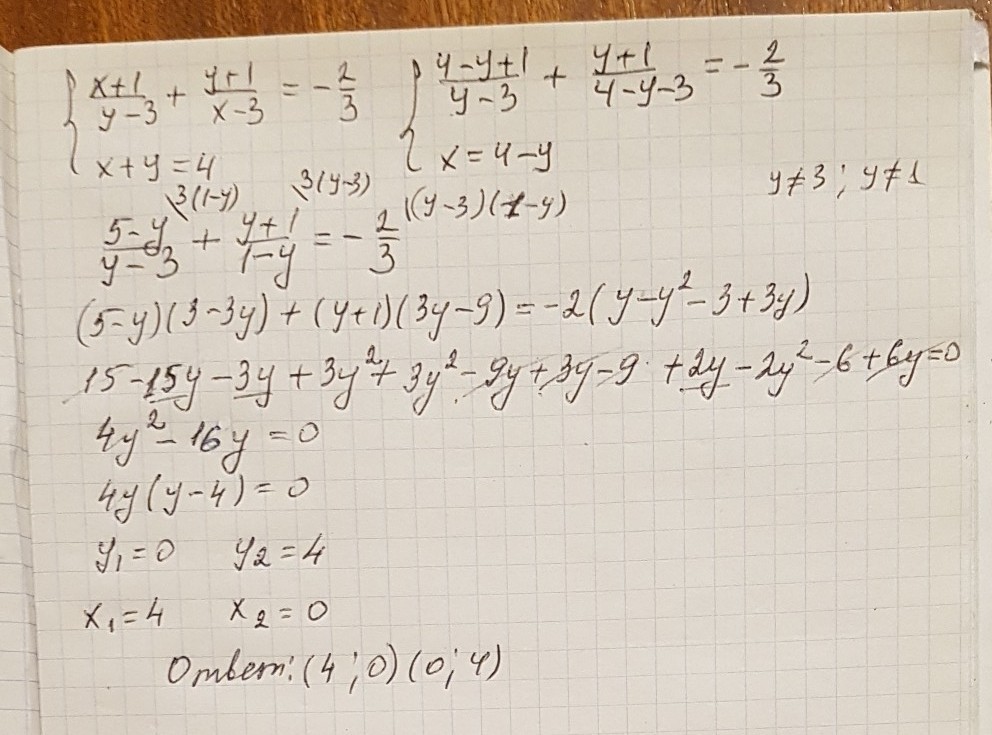 { x+1/y-3 + y+1/x-3 = -2/3 { 4-y+1/y-3 + y+1/4-y-3 = -2/3
x+y=4 x=4-y y≠3; y≠1
5-y/y-3 \3(1-y) + y+1/1-y \3(y-3) = -2/3 \(y-3)(1-y)
(5-y)(3-3y)+(y+1)(3y-9)=-2(y-y²-3+3y)
15-15y-3y+3y²+3y²-9y+3y-9+2y-2y²-6+6y=0
4y²-16y=0
4y(y-4)=0
y₁=0 y₂=4
x₁=4 x₂=0
Ответ: (4;0)(0;4)